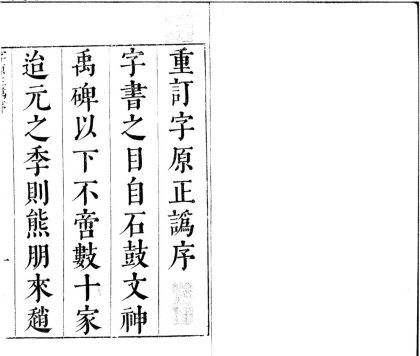 重訂字原正譌序
字書之目自石鼓文神
禹碑以下不啻數十家
迨元之季則熊朋來趙